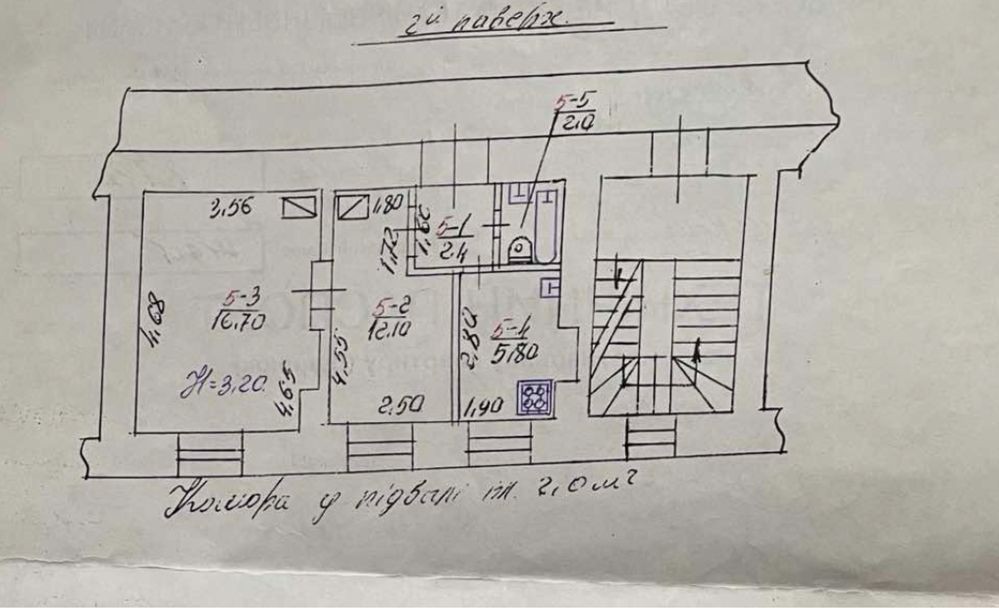 2й поверх.
5-5
2.0
3,56
1,80
1,72
1,66
5-1
2.4
4,68
5-3
16.70
5-2
12.10
2,80
5-4
5,80
H=3,20
4,65
4,55
2,50
1,90
Комора у підвалі пл. 2,0 м²